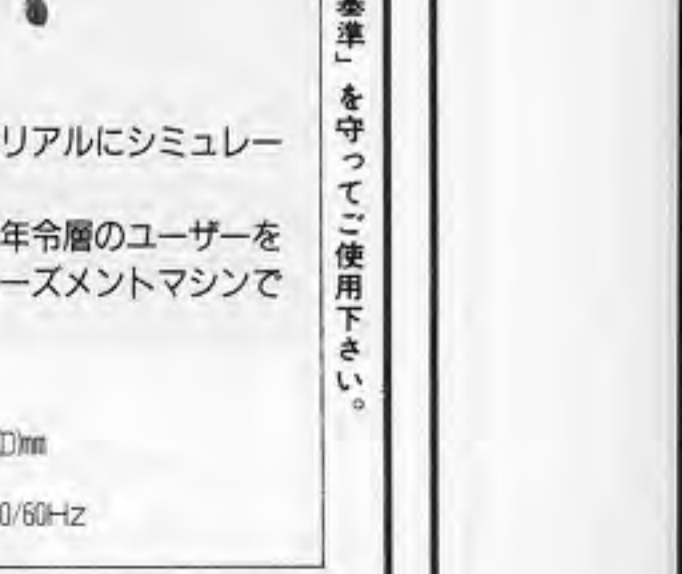 リアルにシミュレー
年令層のユーザーを
ーズメントマシンで
D)mm
0/60Hz
基準」を守ってご使用下さい。